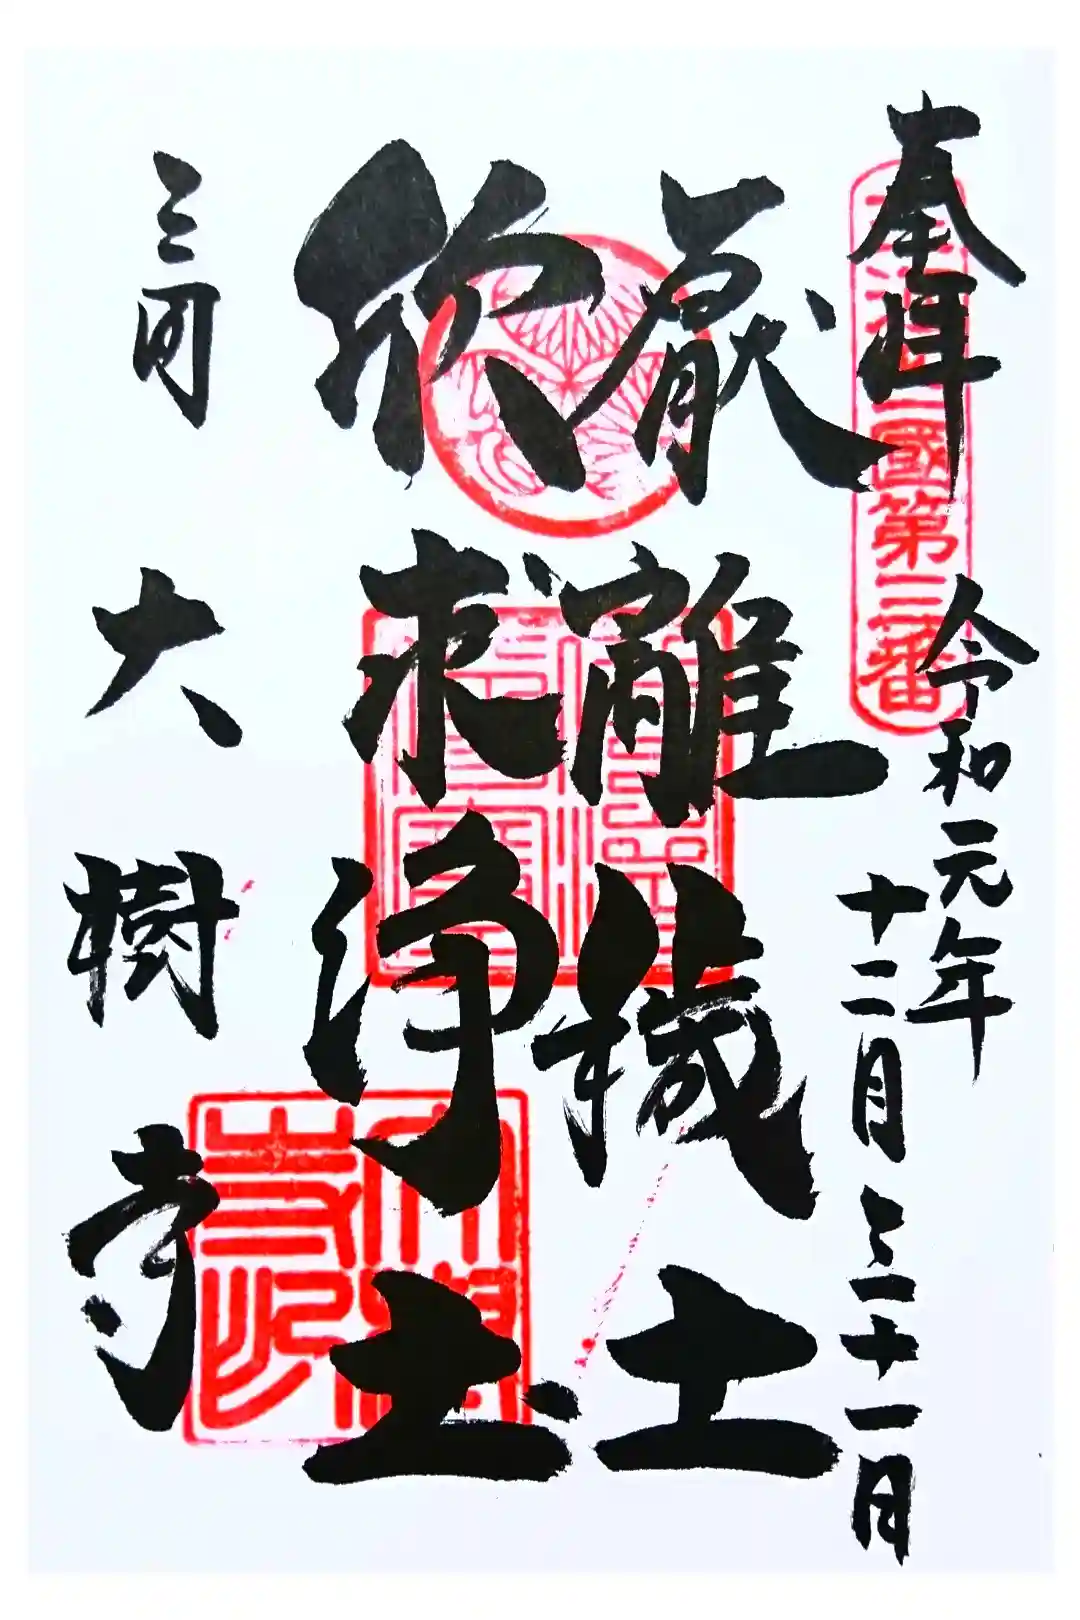 奉拝
三河三國第三番
令和元年
十二月三十一日
厭離穢土
欣求浄土
三河
大樹寺